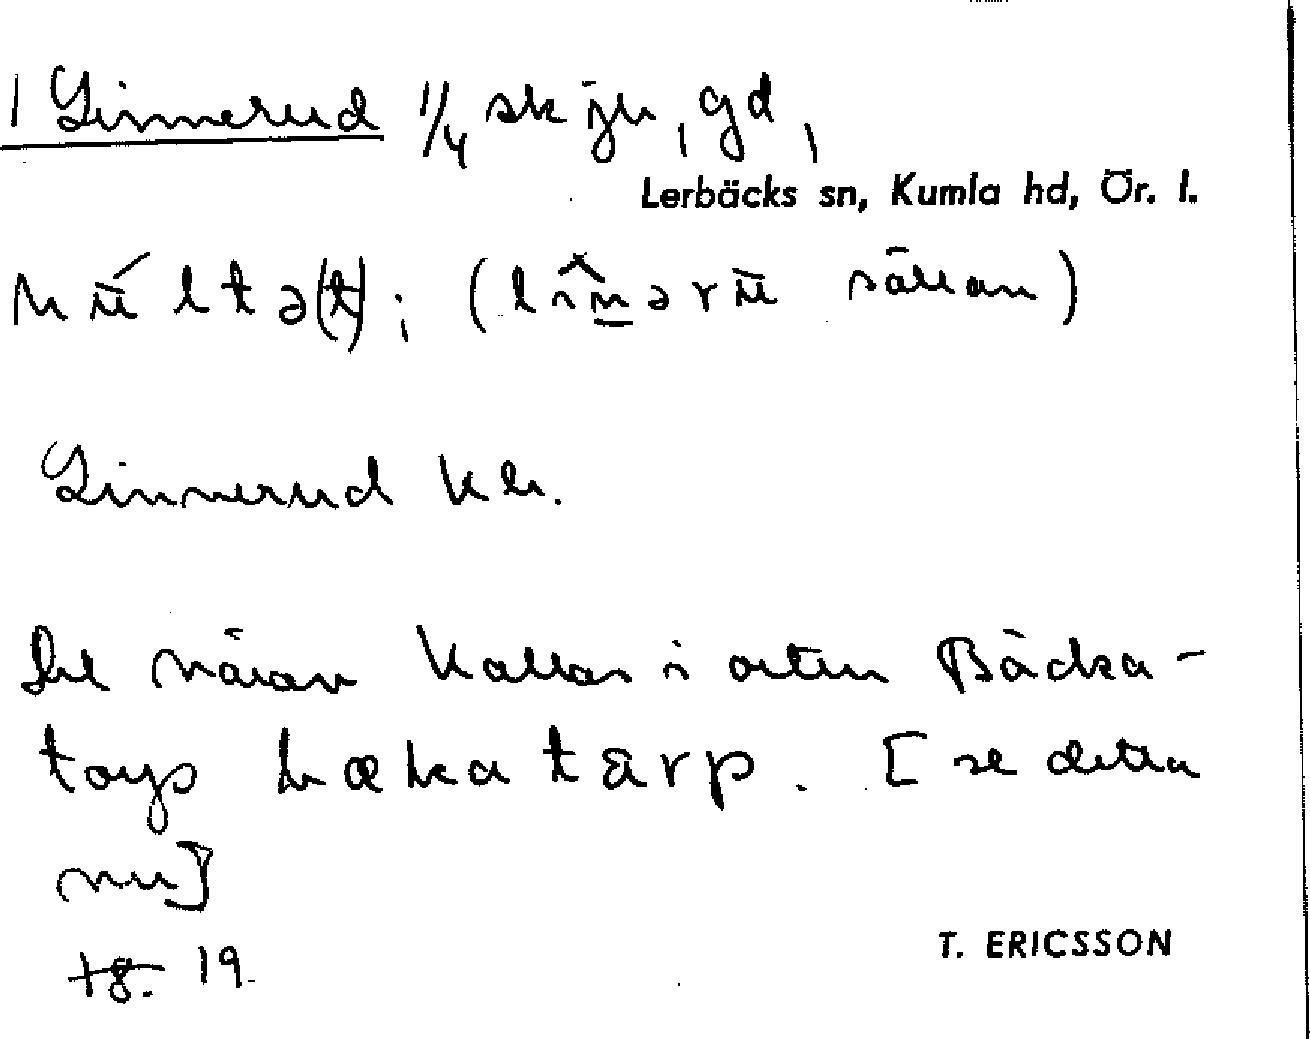 1 Linnerud 1/4 sk ju, gd,
Lerbäcks sn, Kumla hd, Ör. l.
hū́ltə(t); (lìn̲ərū sällan)
Linnerud kk.
Del näran kallas i orten Bäcka-
torp bækatårp. [se detta
nu]
18. 19.
T. ERICSSON